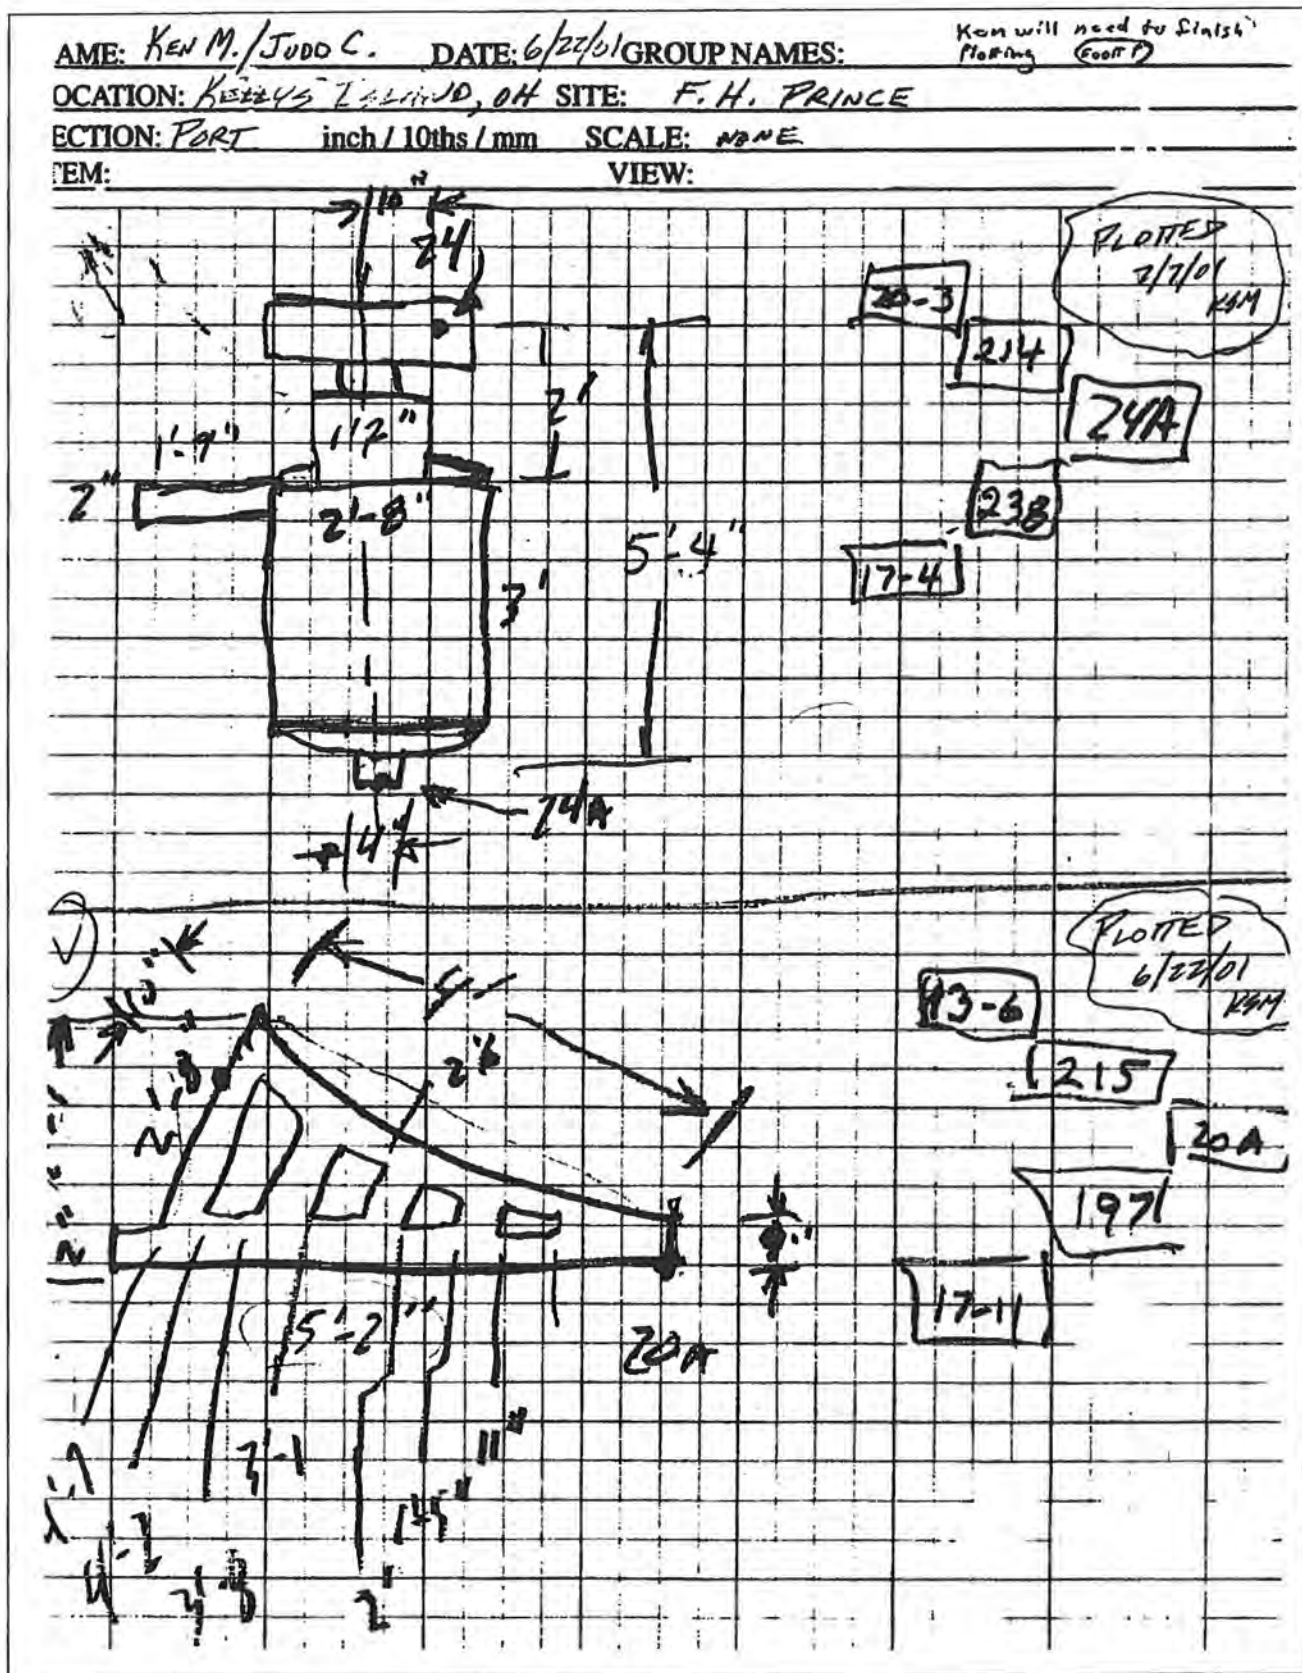 AME: KEN M./JUDD C. DATE: 6/22/01 GROUP NAMES:
Ken will need to finish
Plotting
OCATION: KELLYS ISLAND, OH SITE: F. H. PRINCE
ECTION: PORT inch / 10ths / mm SCALE: NONE
TEM: VIEW:
10"
24
PLOTTED
7/7/01
KSM
20-3
214
24A
238
17-4
2'
1'2"
1'-9"
2"
2'-8"
5'-4"
3'
24A
4"
PLOTTED
6/22/01
KSM
13-6
215
20A
197
17-11
10"
5'-
2'6
9"
5'-2"
20A
11"
3'-1
1'-5"
4'-2
3'-8
2'